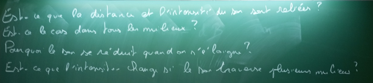 Est-ce que la distance et l'intensité du son sont reliées ?
Est-ce le cas dans tous les milieux ?
Pourquoi le son se réduit quand on s'éloigne ?
Est-ce que l'intensité change si le son traverse plusieurs milieux ?